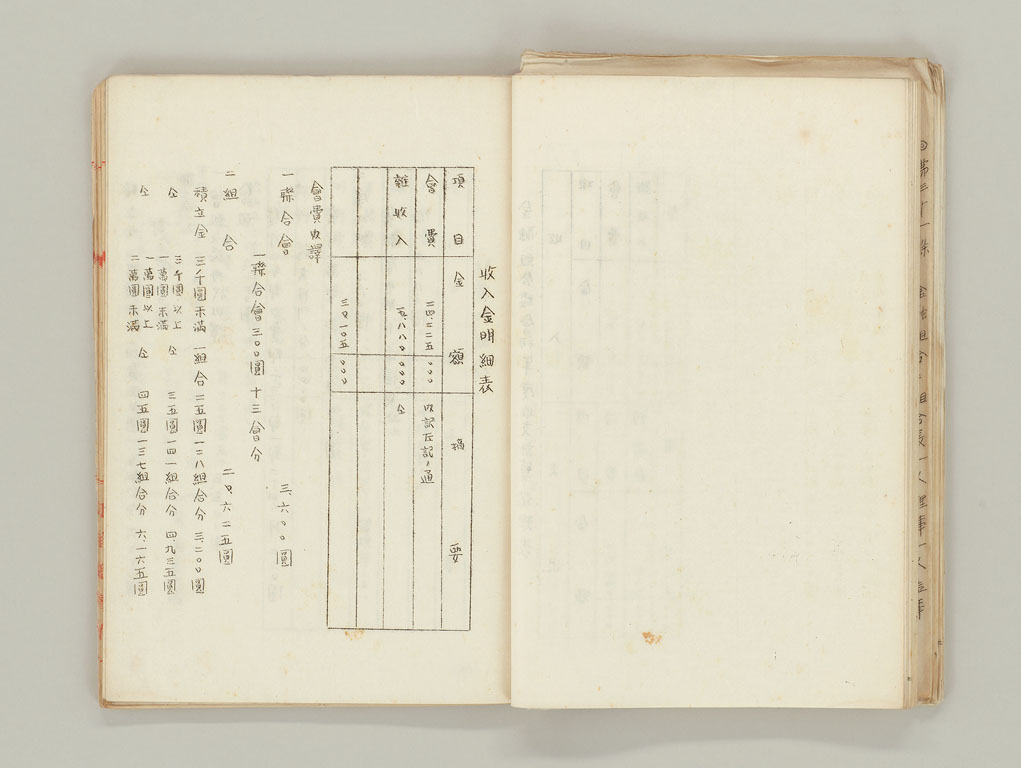 收入金明細表
項目 金額 摘要
會費 二四、二二五 〇〇〇 內訳左記ノ通
雜收入 五、八八〇 〇〇〇 仝
三〇、一〇五 〇〇〇
會費內譯
一聯合會 三、六〇〇圓
一聯合會三〇〇圓 十三會分
二組合 二〇、六二五圓
積立金 三千圓未滿 一組合二五圓 一二八組合分 三、二〇〇圓
仝 三千圓以上 一萬圓未滿 仝 三五圓 一四一組合分 四、九三五圓
仝 一萬圓以上 二萬圓未滿 仝 四五圓 一三七組合分 六、一六五圓